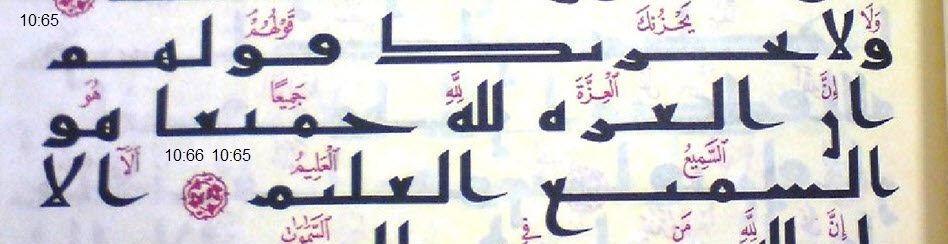 10:65
وَلَا يَحْزُنكَ قَوْلُهُمْ
ولا يحزنك قولهم
إِنَّ الْعِزَّةَ لِلَّهِ جَمِيعًا هُوَ
ان العزه لله جميعا هو
السَّمِيعُ الْعَلِيمُ 10:65 10:66 أَلَا
السميع العليم الا
إِنَّ لِلَّهِ مَن فِي السَّمَوَاتِ